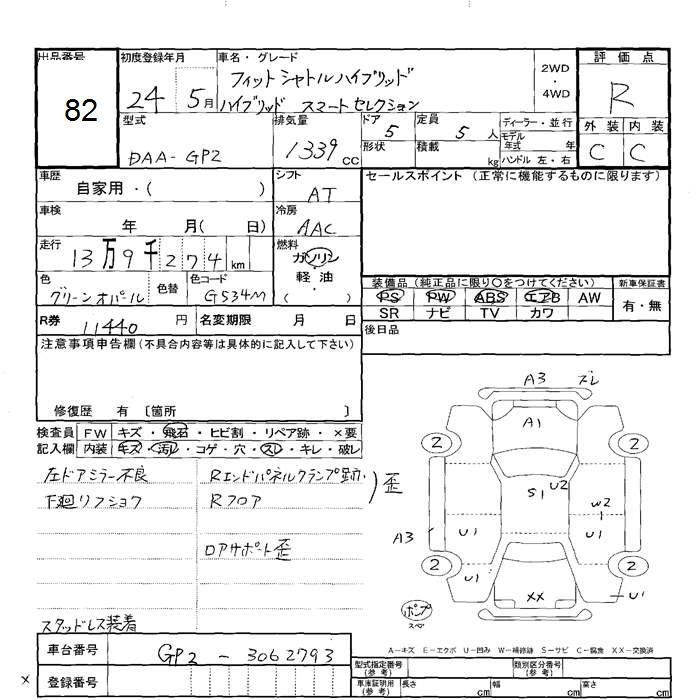 出品番号
82
初度登録年月
24 5月
車名・グレード
フィットシャトルハイブリッド
ハイブリッド スマートセレクション
2WD
・
4WD
評価点
R
外装 内装
C C
型式
DAA-GP2
排気量
1339 cc
ドア
5
形状
定員
5 人
積載
kg
ディーラー・並行
モデル
年式 年
ハンドル 左・右
車歴
自家用・( )
シフト
AT
セールスポイント (正常に機能するものに限ります)
車検
年 月( 日)
冷房
AAC
走行
13万9千274 km
燃料
ガソリン
軽油
( )
色
グリーンオパール
色替
色コード
G534M
装備品 (純正品に限り○をつけてください)
新車保証書
PS PW ABS エアB AW
SR ナビ TV カワ
有・無
R券
11440 円
名変期限 月 日
後日品
注意事項申告欄(不具合内容等は具体的に記入して下さい)
修復歴 有 〔箇所 〕
検査員
記入欄
FW キズ・飛石・ヒビ割・リペア跡・×要
内装 キズ・汚レ・コゲ・穴・スレ・キレ・破レ
左ドアミラー不良
下廻リフショウ
Rエンドパネルクランプ跡
Rフロア
) 歪
ロアサポート歪
スタッドレス装着
A3 ズレ
A1
2 2
S1 U2
W2
A3 U1 U1
2 2
U1
XX
U1
ポンプ
スペア
A-キズ E-エクボ U-凹み W-補修跡 S-サビ C-腐食 XX-交換済
車台番号
GP2 - 3062793
登録番号
×
型式指定番号
(参考)
類別区分番号
(参考)
車庫証明用
(参考)
長さ cm 幅 cm 高さ cm